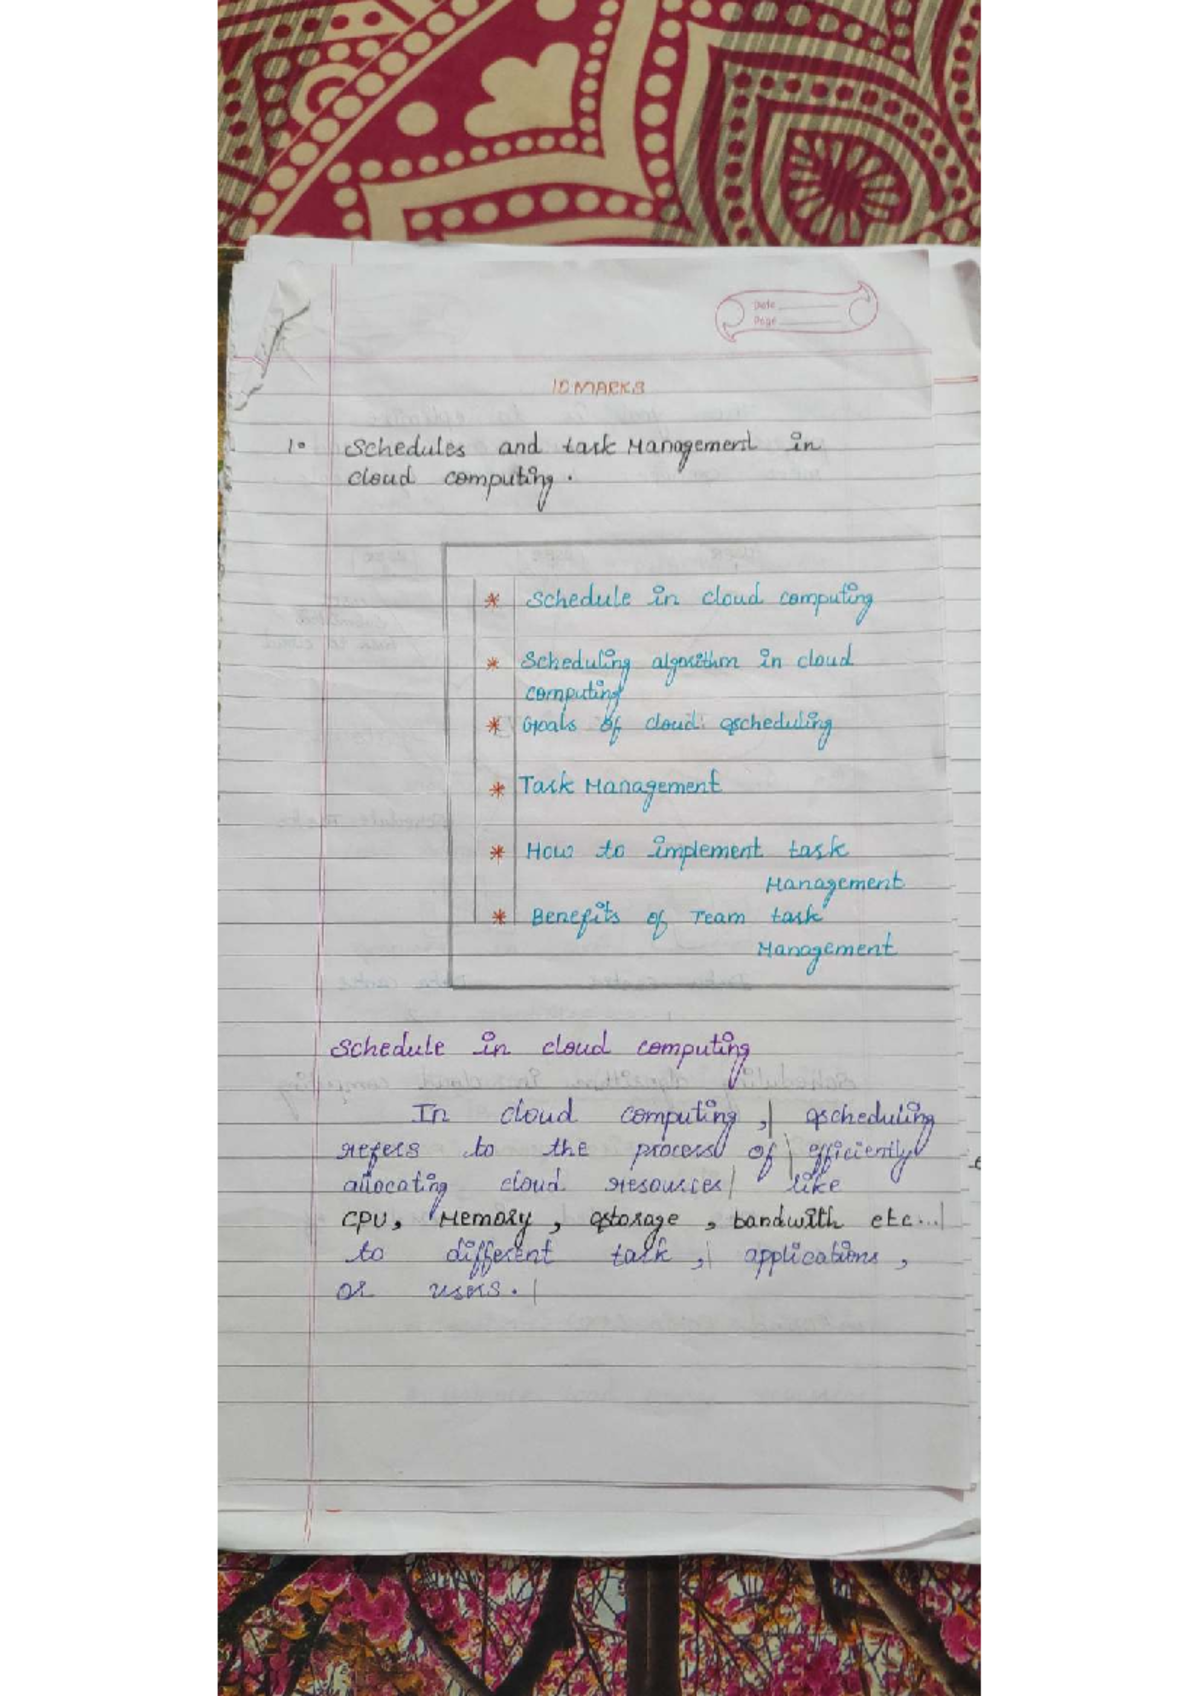 Date
Page
10 MARKS
1. Schedules and task Management in
cloud computing.
* Schedule in cloud computing
* Scheduling algorithm in cloud
computing
* Goals of cloud scheduling
* Task Management
* How to implement task
Management
* Benefits of Team task
Management
Schedule in cloud computing
In cloud computing, scheduling
refers to the process of efficiently
allocating cloud resources like
CPU, Memory, storage, bandwith etc...
to different task, applications,
or users.